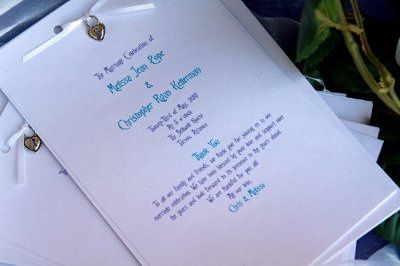 The Marriage Celebration of
Melissa Jean Pope
&
Christopher Ryan Kellerman
Thank You
To all our family and friends, we thank you for joining us in our
marriage celebration. We have been blessed by your love and support over
the years and look forward to its presence in the years ahead.
We are thankful for you all!
All our love,
Chris & Melissa